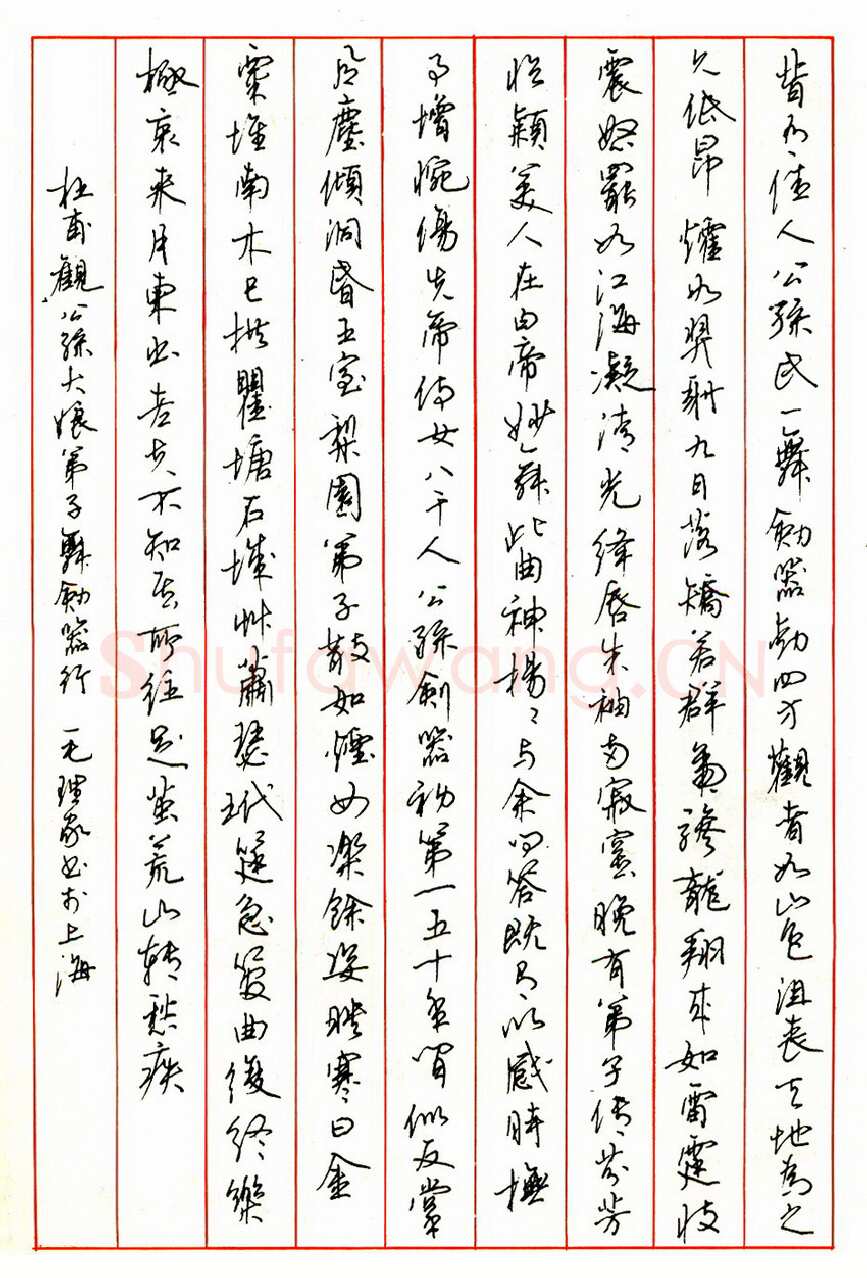 昔有佳人公孫氏一舞劍器動四方觀者如山色沮喪天地為之
久低昂㸌如羿射九日落矯若群帝驂龍翔來如雷霆收
震怒罷如江海凝清光絳唇朱袖兩寂寞晚有弟子傳芬芳
臨潁美人在白帝妙舞此曲神揚々與余問答既有以感時撫
事增惋傷先帝侍女八千人公孫劍器初第一五十年間似反掌
風塵傾洞昏王室梨園弟子散如煙女樂餘姿映寒日金
粟堆南木已拱瞿塘石城艸蕭瑟玳筵急管曲復終樂
極哀來月東出老夫不知其所往足繭荒山轉愁疾
杜甫觀公孫大娘弟子舞劍器行 毛理家書於上海
Shufawang.CN